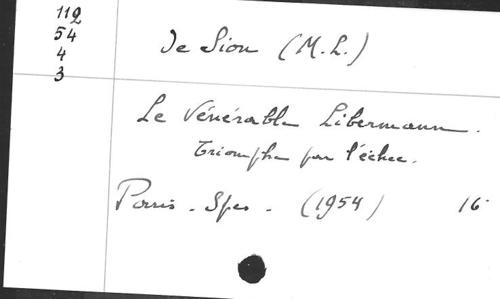 112
54
4
3
De Sion (M.L.)
Le Vénérable Libermann.
Triomphe par l'échec.
Paris - Spes - (1954) 16°